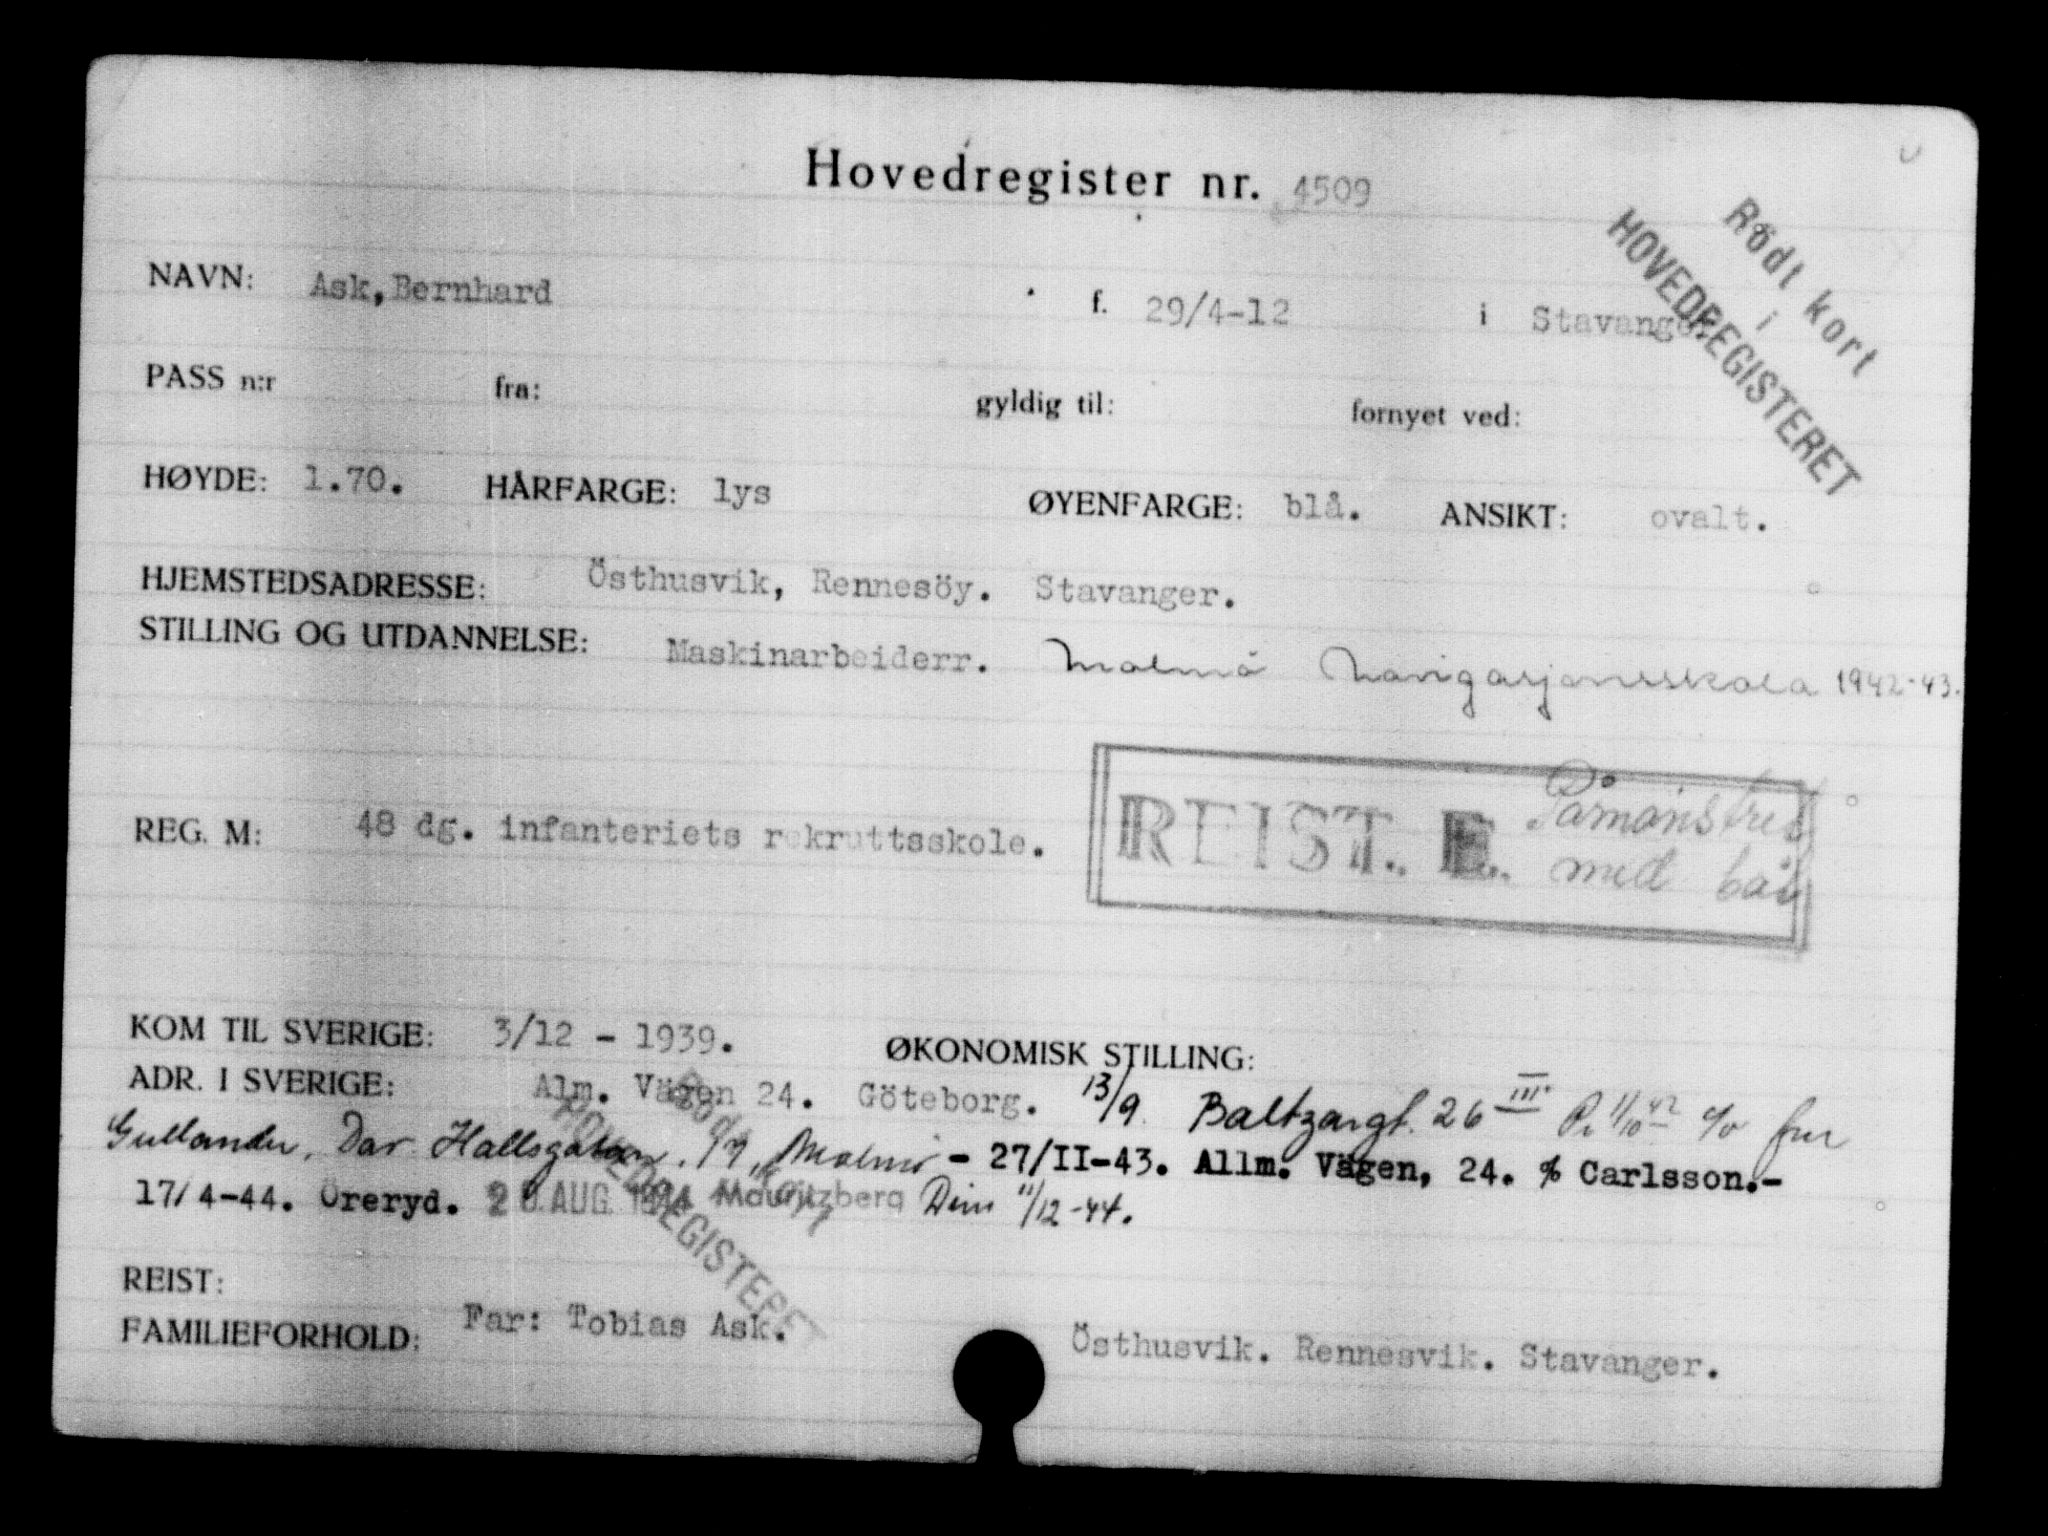 Hovedregister nr. 4509
Rödt kort
i
HOVEDREGISTERET
NAVN: Ask, Bernhard f. 29/4-12 i Stavanger
PASS n:r fra: gyldig til: fornyet ved:
HØYDE: 1.70. HÅRFARGE: lys ØYENFARGE: blå. ANSIKT: ovalt.
HJEMSTEDSADRESSE: Östhusvik, Rennesöy. Stavanger.
STILLING OG UTDANNELSE: Maskinarbeiderr. Malmö Navigasjonsskola 1942-43.
REG. M: 48 dg. infanteriets rekruttsskole.
REIST. E. Påmønstret
med båt
KOM TIL SVERIGE: 3/12 - 1939. ØKONOMISK STILLING:
ADR. I SVERIGE: Alm. Vägen 24. Göteborg. 13/9. Baltzargt. 26 III 11/10 42 c/o fru
Gullander, Dav Hallsgatan, 19, Malmö - 27/II-43. Allm. Vägen, 24. % Carlsson.-
17/4-44. Öreryd. 2 AUG 1944 Mauritzberg Dim 11/12-44.
Rödt kort
HOVEDREGISTERET
REIST:
FAMILIEFORHOLD: Far: Tobias Ask. Östhusvik. Rennesvik. Stavanger.